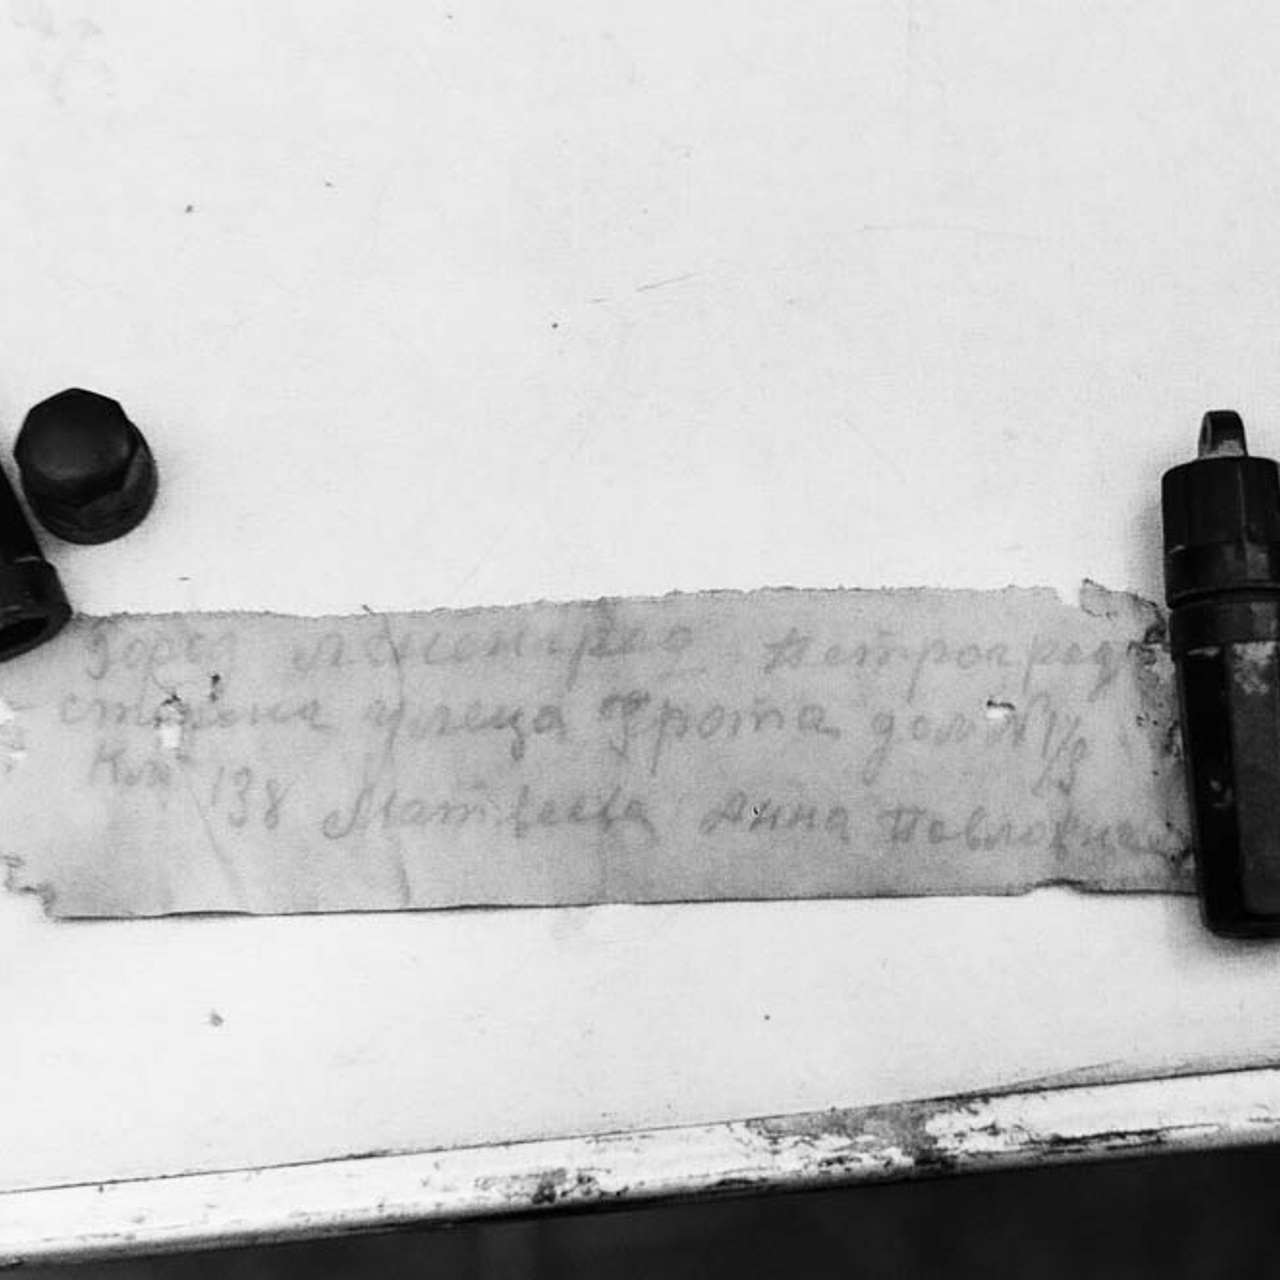 Город Ленинград Петроград
сторона улеца Грота дом № 1/3
Ком 138 Матвеева Анна Павловна